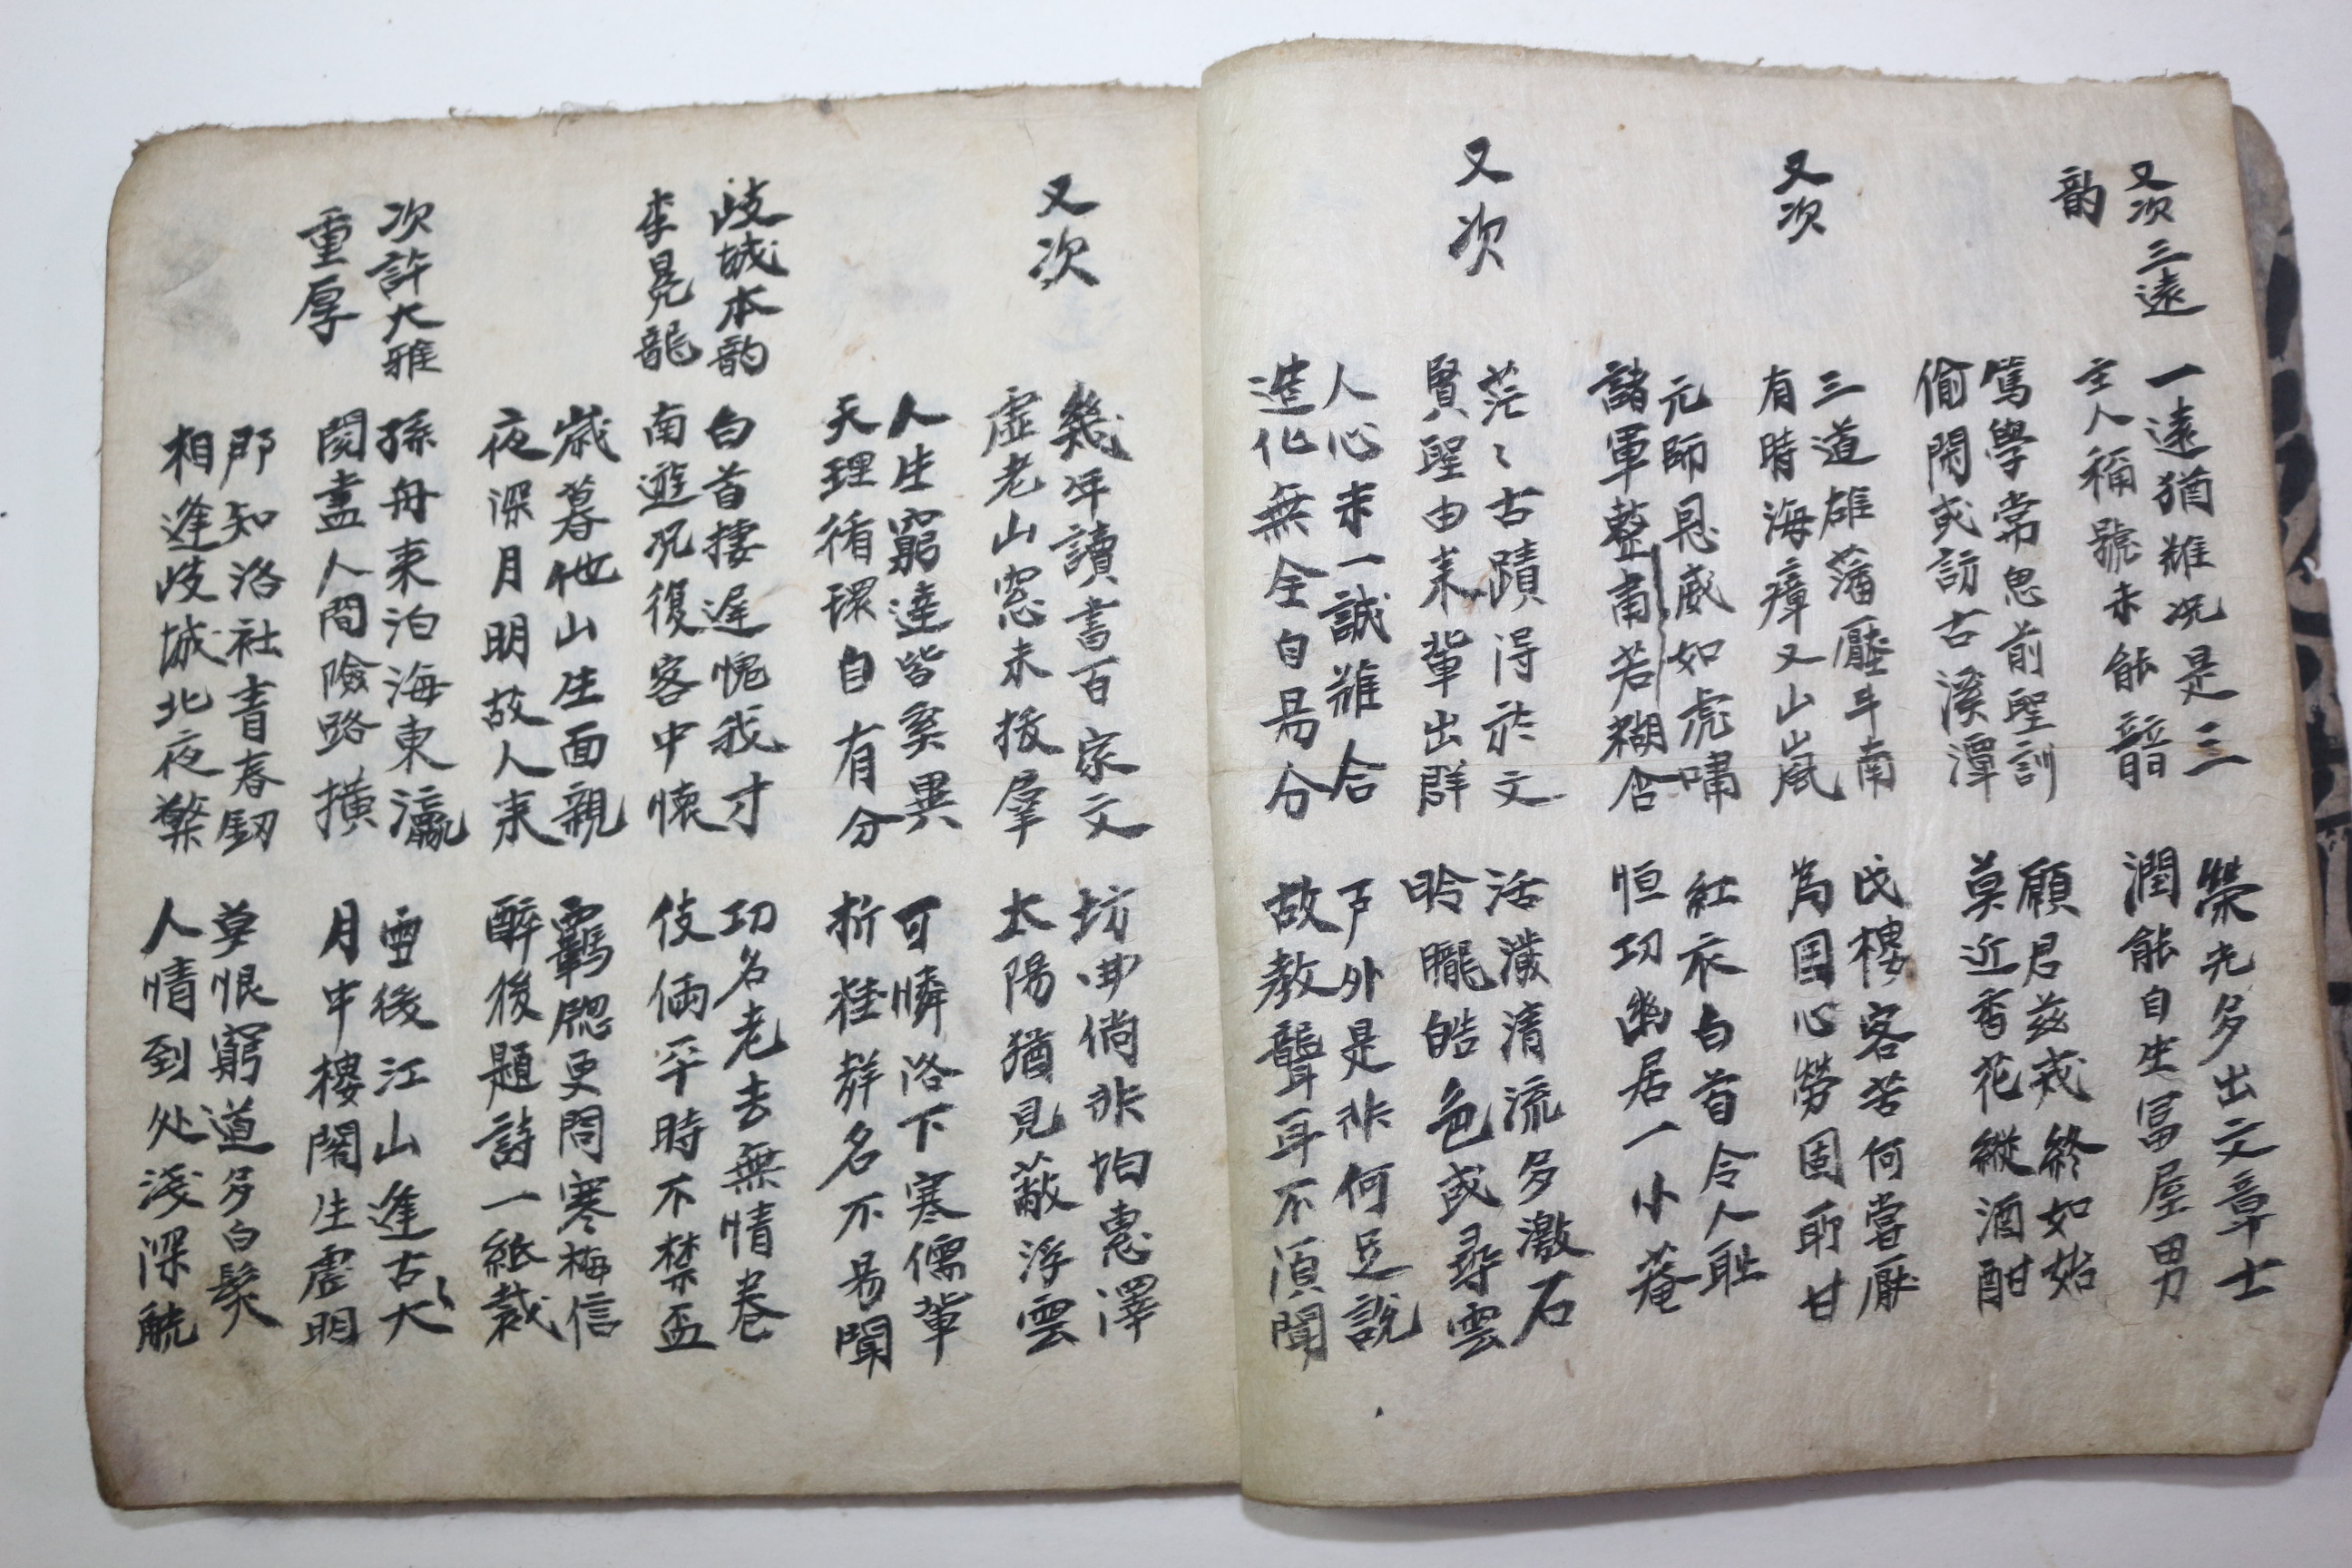 又次三遠
韵
一遠猶難况是三
主人稱號未能諳
榮光多出文章士
潤能自生冨屋男
篤學常思前聖訓
偷閑或訪古溪潭
顧君玆戒終如始
莫近香花縱酒酣
又次
三道雄藩壓斗南
有時海瘴又山嵐
戍樓客苦何嘗厭
為国心勞固所甘
元帥恩威如虎嘯
諸軍整肅若糊含
紅衣白首令人耻
恒切幽居一小菴
又次
茫〻古蹟得於文
賢聖由来輩出群
活潑清流多激石
昤朧皓色或尋雲
人心未一誠難合
造化無全自昜分
戶外是非何足說
故教聾耳不湏聞
又次
幾年讀書百家文
虛老山窓未拔羣
坊曲倘非怕惠澤
太陽猶見蔽浮雲
人生窮達皆奚異
天理循環自有分
可憐洛下寒儒輩
折桂名不昜聞
岐城本韵
李晃龍
白首捿遲愧我才
南遊况復客中懷
功名老去無情卷
伎倆平時不禁盃
歲暮他山生面親
夜深月明故人来
羈愁更問寒梅信
醉後題詩一紙裁
次許大雅
重厚
孫舟来泊海東瀛
閱盡人間險路橫
雪後江山逢古
月中樓閣生虛明
知洛社青春釼
相逢岐城北夜檠
莫恨窮道多白髮
人情到处淺深觥